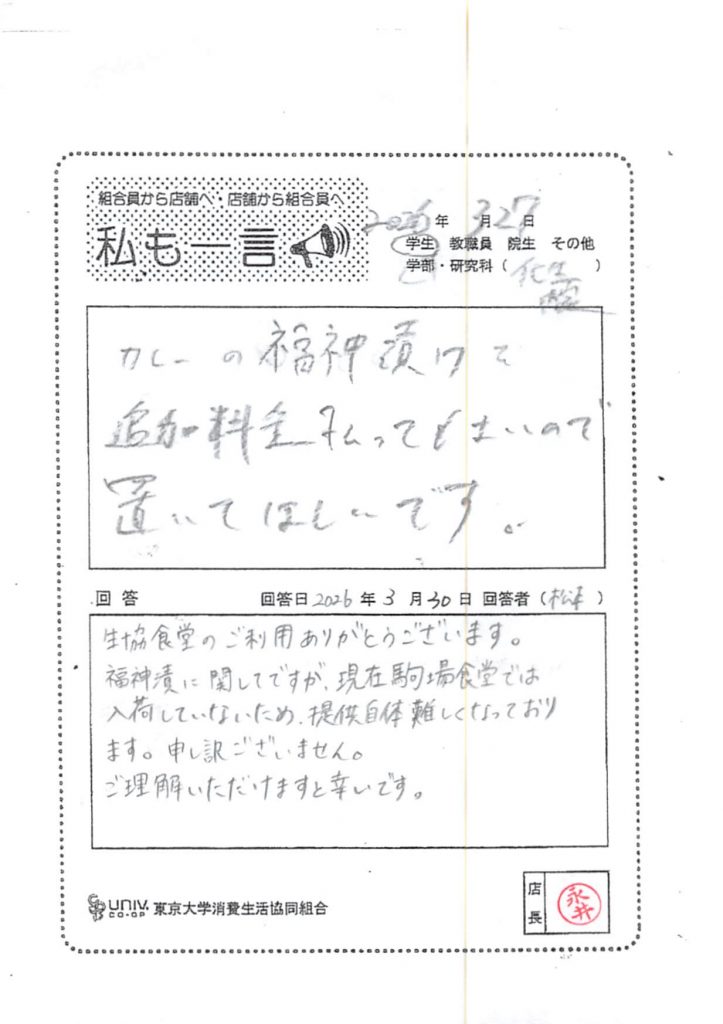 組合員から店舗へ・店舗から組合員へ
私も一言
2026年 3月27日
学生 教職員 院生 その他
学部・研究科( )
カレーの福神漬けを
追加料金払ってもよいので
置いてほしいです。
回答 回答日2026年3月30日 回答者(松本)
生協食堂のご利用ありがとうございます。
福神漬に関してですが、現在駒場食堂では
入荷していないため、提供自体難しくなっており
ます。申し訳ございません。
ご理解いただけますと幸いです。
UNIV. CO-OP 東京大学消費生活協同組合
店長
永井